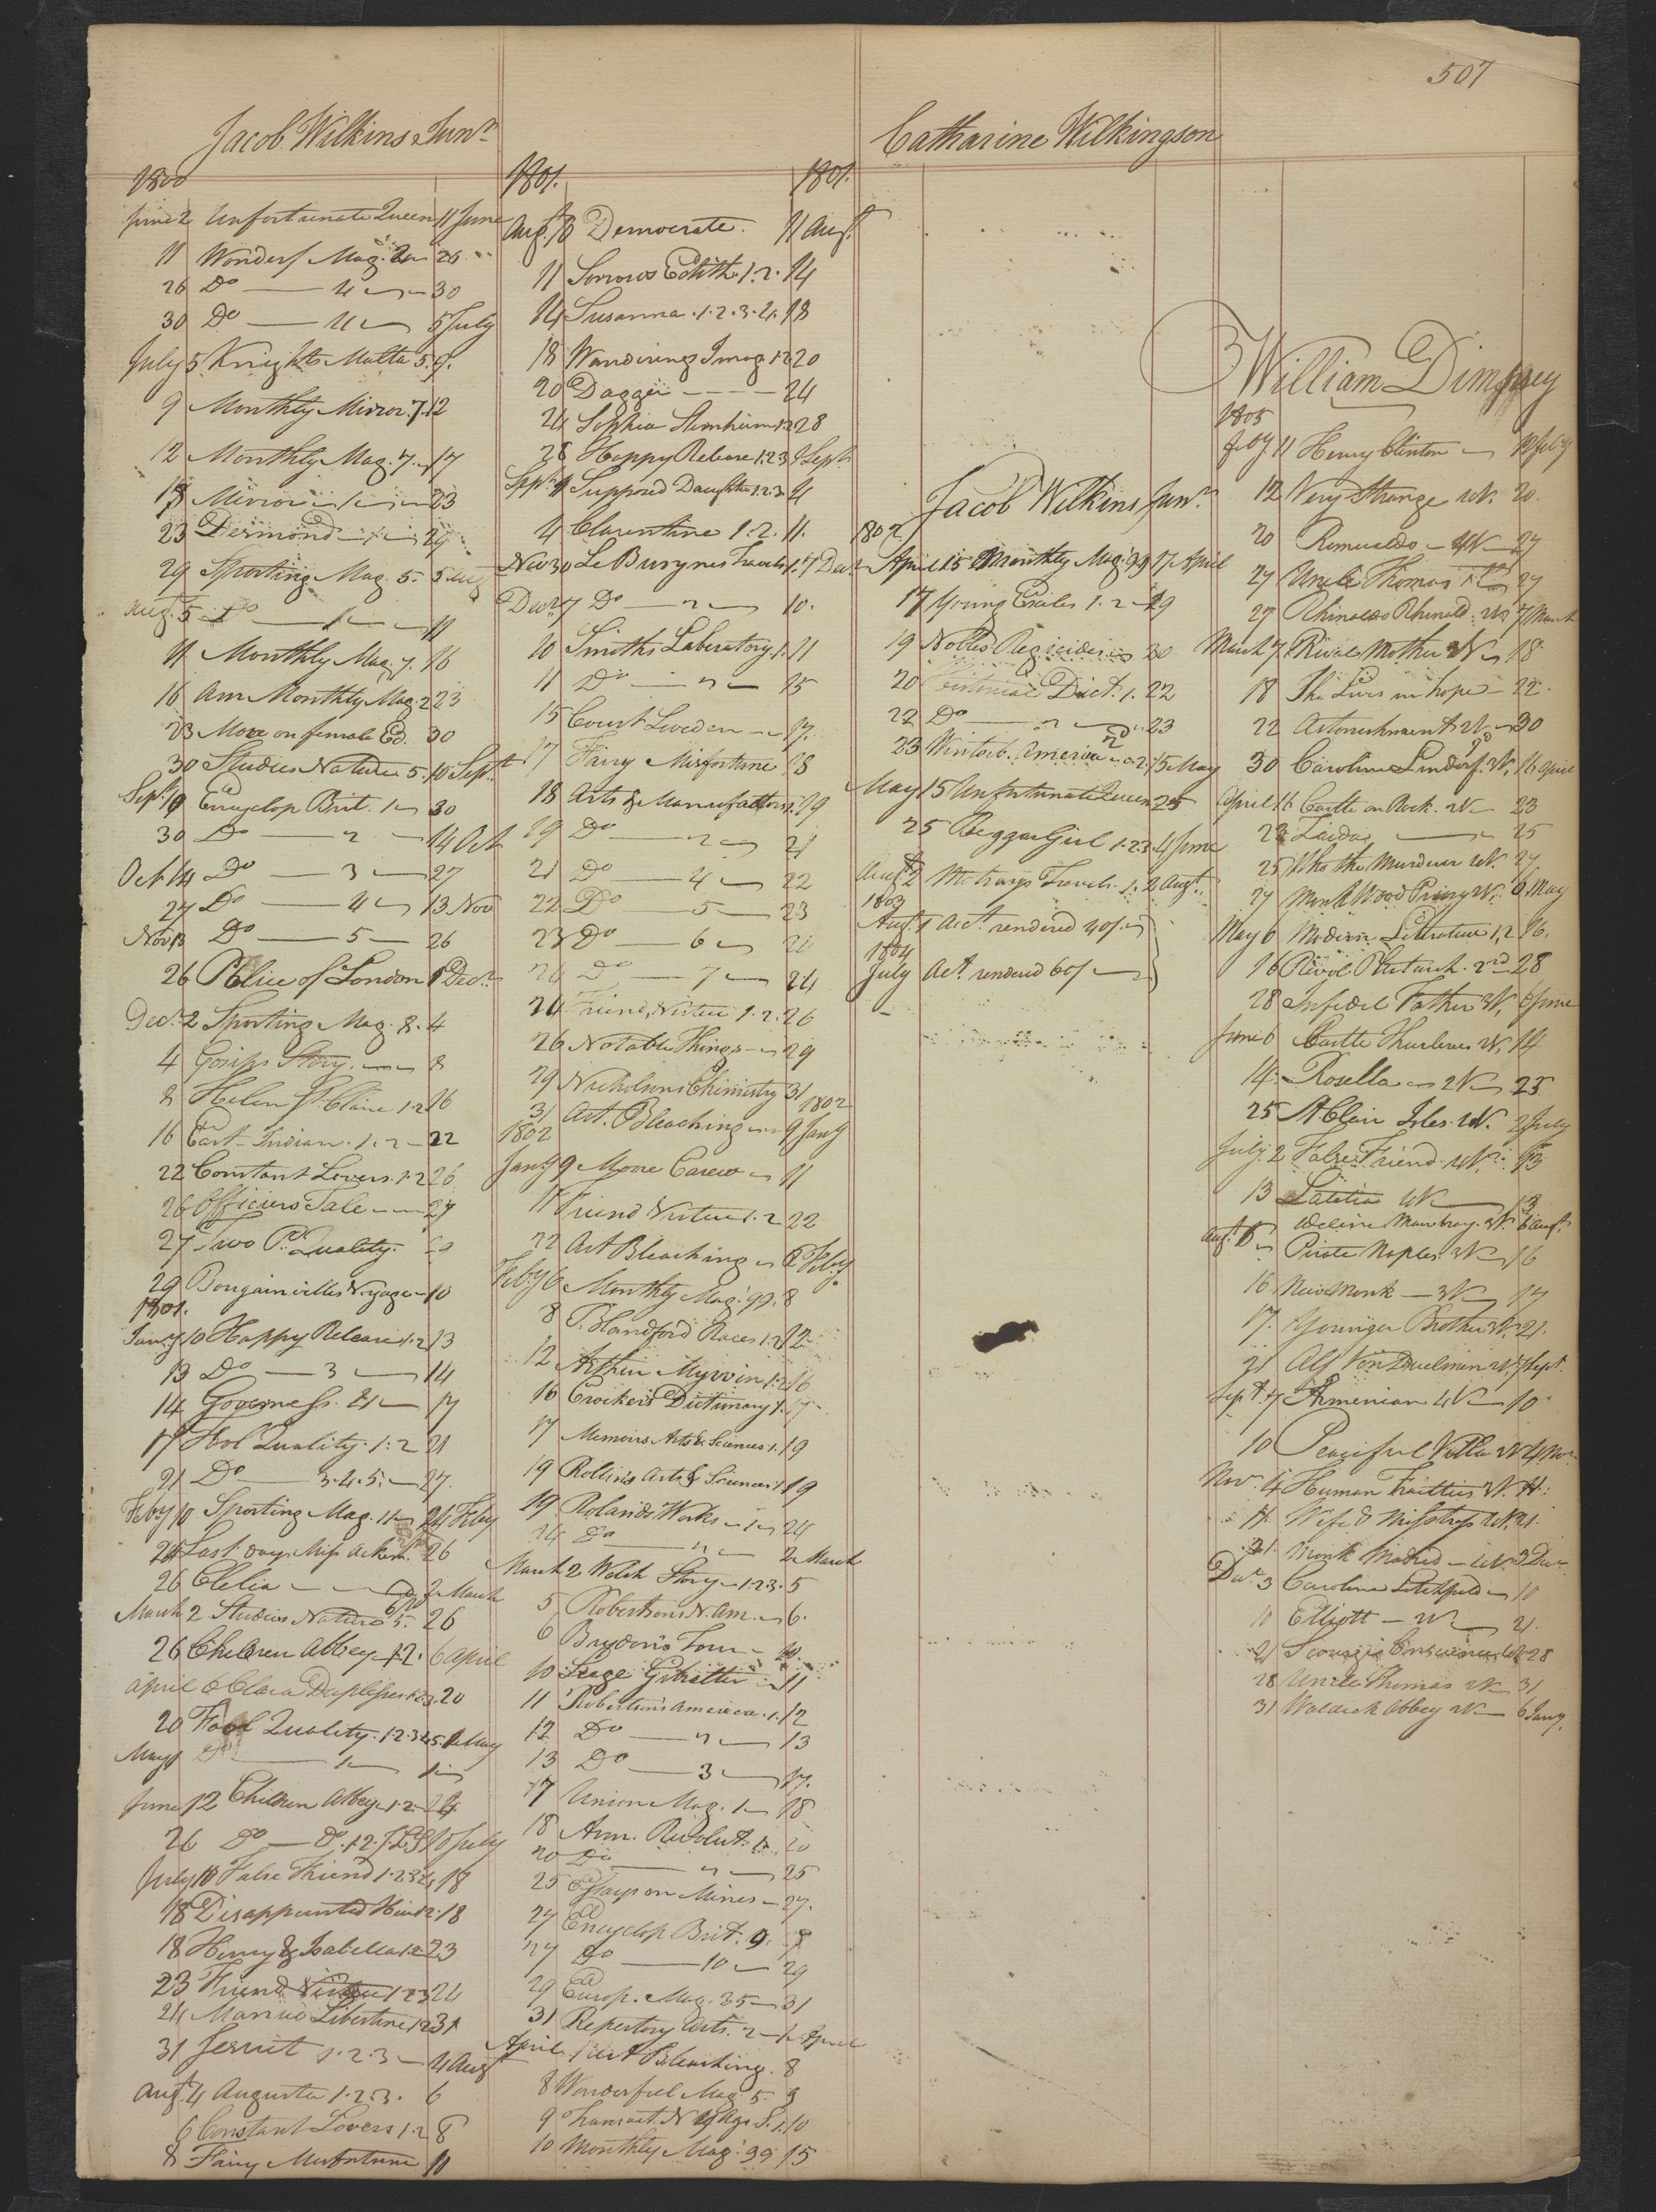 507
Jacob Wilkins Junr
1800
June 2 Unfortunate Queen 11 June
11 Wonderf Mag. 2 26
26 Do 4 30
30 Do 4 5 July
July 5 Knights Malta 5. 9.
9 Monthly Mirror. 7. 12
12 Monthly Mag. 7. 17
18 Mirror 1 23
23 Desmond 1 29
29 Sporting Mag. 5. 5 Aug
Augt. 5 Do 1 11
11 Monthly Mag. 7. 16
16 Am Monthly Mag. 2 23
23 More on female Ed. 30
30 Studies Nature 5. 10 Sept
Sept 10 Encyclop Brit. 1 30
30 Do 2 14 Oct
Oct 14 Do 3 27
27 Do 4 13 Nov
Nov 13 Do 5 26
26 Police of London Decr
Decr. 2 Sporting Mag. 8. 4
4 Gosips Story. 8
8 Helen St. Claire 1.2 16
16 East Indian. 1. 2 22
22 Constant Lovers. 1.2 26
26 Officers Tale 27
27 Two P. Quality. 29
29 Bougainvilles Voyage 10
1801.
Jany 10 Happy Release 1.2 13
13 Do 3 14
14 Governess. 17
17 Fool Quality. 1. 2 21
21 Do 3. 4. 5. 27.
Feby 10 Sporting Mag. 11 24 Feby
24 Last days Miss Ackem. 26
26 Clelia 2 March
March 2 Studies Nature 5. 26
26 Children Abbey 1.2. 6 April
April 6 Clara Duplessis 1.2.3. 20
20 Fool Quality. 1.2.3.4.5. 1 May
May 1 Do 1
June 12 Children Abbey 1.2. 26
26 Do Do. 1.2. 10 July
July 10 False Friend 1.2.3.4 18
18 Disappointed Heir 1.2. 18
18 Henry & Isabella 1.2 23
23 Friend Virtue 1 2 3 24
24 Man no Libertine 1.2 31
31 Jesuit 1. 2. 3 4 Aug
Augt. 4 Augusta 1. 2. 3. 6
6 Constant Lovers 1. 2 8
8 Fairy Misfortune 10
1801. 1801.
Augt. 10 Democrate. 11 Augt.
11 Sorrows Edith. 1. 2. 14
14 Susanna. 1. 2. 3. 4. 18
18 Wanderings Imag. 1.2 20
20 Dagger 24
24 Sophia Sternheim 1.2 28
28 Happy Release 1.2.3 Sept
Sept Supposed Daughter 1.2.3. 4
4 Clarentine 1. 2. 11.
Nov 30 Le Burynes Travels 1. 7 Decr
Decr 7 Do 2 10.
10 Smiths Laboratory 1. 11
11 Do 2 15
15 Court Sweden 17.
17 Fairy Misfortune 18
18 Arts & Manufactors 1. 19
19 Do 2 21
21 Do 4 22
22 Do 5 23
23 Do 6
24 Do 7 24
24 Friend, Virtue 1. 2. 26
26 Notable Things 29
29 Nicholsons Chimistry 31
1802
31 Art. Bleaching 9 Jany
1802
Jany 9 Moore Carew 11
11 Friend Virtue 1. 2 22
22 Art Bleaching 6 Feby
Feby 6 Monthly Mag. 99. 8
8 P. Blandford Races 1.2 12
12 Arthur Mervin 1.2 16
16 Crockers Dictionary 1. 17
17 Memoirs Arts & Sciences 1. 19
19 Rollins Arts & Sciences 1 19
19 Rolands Works 1 24
24 Do 2 2 March
March 2 Welsh Story 1.2.3. 5
5 Robertsons N. Am. 6.
6 Brydons Tour 10.
10 Siege Gibralter 11
11 Robertsons America. 1. 12
12 Do 2 13
13 Do 3 17.
17 Union Mag. 1 18
18 Am. Revolut. 1. 20
20 Do 2 25
25 Essays on Mines 27.
27 Encyclop Brit. 9.
27 Do 10 29
29 Europ. Mag. 35 31
31 Repertory Arts. 2 1 April
April 1 Art Bleaching. 8
8 Wonderful Mag. 5 9
9 Transact. N Y Agr. S. 1. 10
10 Monthly Mag. 99 15
Catharine Wilkingson
Jacob Wilkins Junr.
1802
April 15 Monthly Mag. 99 17 April
17 Young Exiles 1. 2 19
19 Nobles Regicides 20
20 Historical Dict. 1. 22
22 Do 2 23
23 Winterb. America 2. 15 May
May 15 Unfortunate Queen 25
25 Beggar Girl 1.2.3. 4 June
Augt 2 Travels. 1. 2 Augt.
1803
Augt. 1 Acct. rendered 40/
1804
July Act. rendered 60/
William Dimpsey
1805
Feby 11 Henry Clinton 12 Feby
12 Very Strange 20.
20 Romualdo 27
27 Uncle Thomas 27
27 Rhinaldo Rhinald. 7 March
March 7 Rival Mother 18
18 She Lives in hope 22.
22 Astonishment 30
30 Caroline Lindorf. 16 April
April 16 Castle on Rock. 23
23 Zaida 25
25 Who the Murderer 27
27 Monk Wood Priory 6 May
May 6 Modern Literature 1, 2 16.
16 Rivol Plutarch. 2nd 28
28 Infidel Father 6 June
June 6 Castle 14
14 Rosella 2V 25
25 St Clair Isles. 2 July
July. 2 False Friend. 13
13 Latitia 13
Adeline Mowbray. 6 Augt
Augt. 6 Pirate Naples. 16
16 New Monk 3V 17
17. Younger Brother 21.
21 Alf Von Duelman Sept.
Sept. 7 Armenian 4V 10
10 Peaceful Villa 4 Nov
Nov. 4 Human Frailties
Wife & Misstress 21.
21. Monk Madrid 3 Decr
Decr. 3 Caroline Litchfield 10
10 Elliott 21.
21 Conscience 28
28 Uncle Thomas 31
31 Waldeck Abbey 6 Jany.